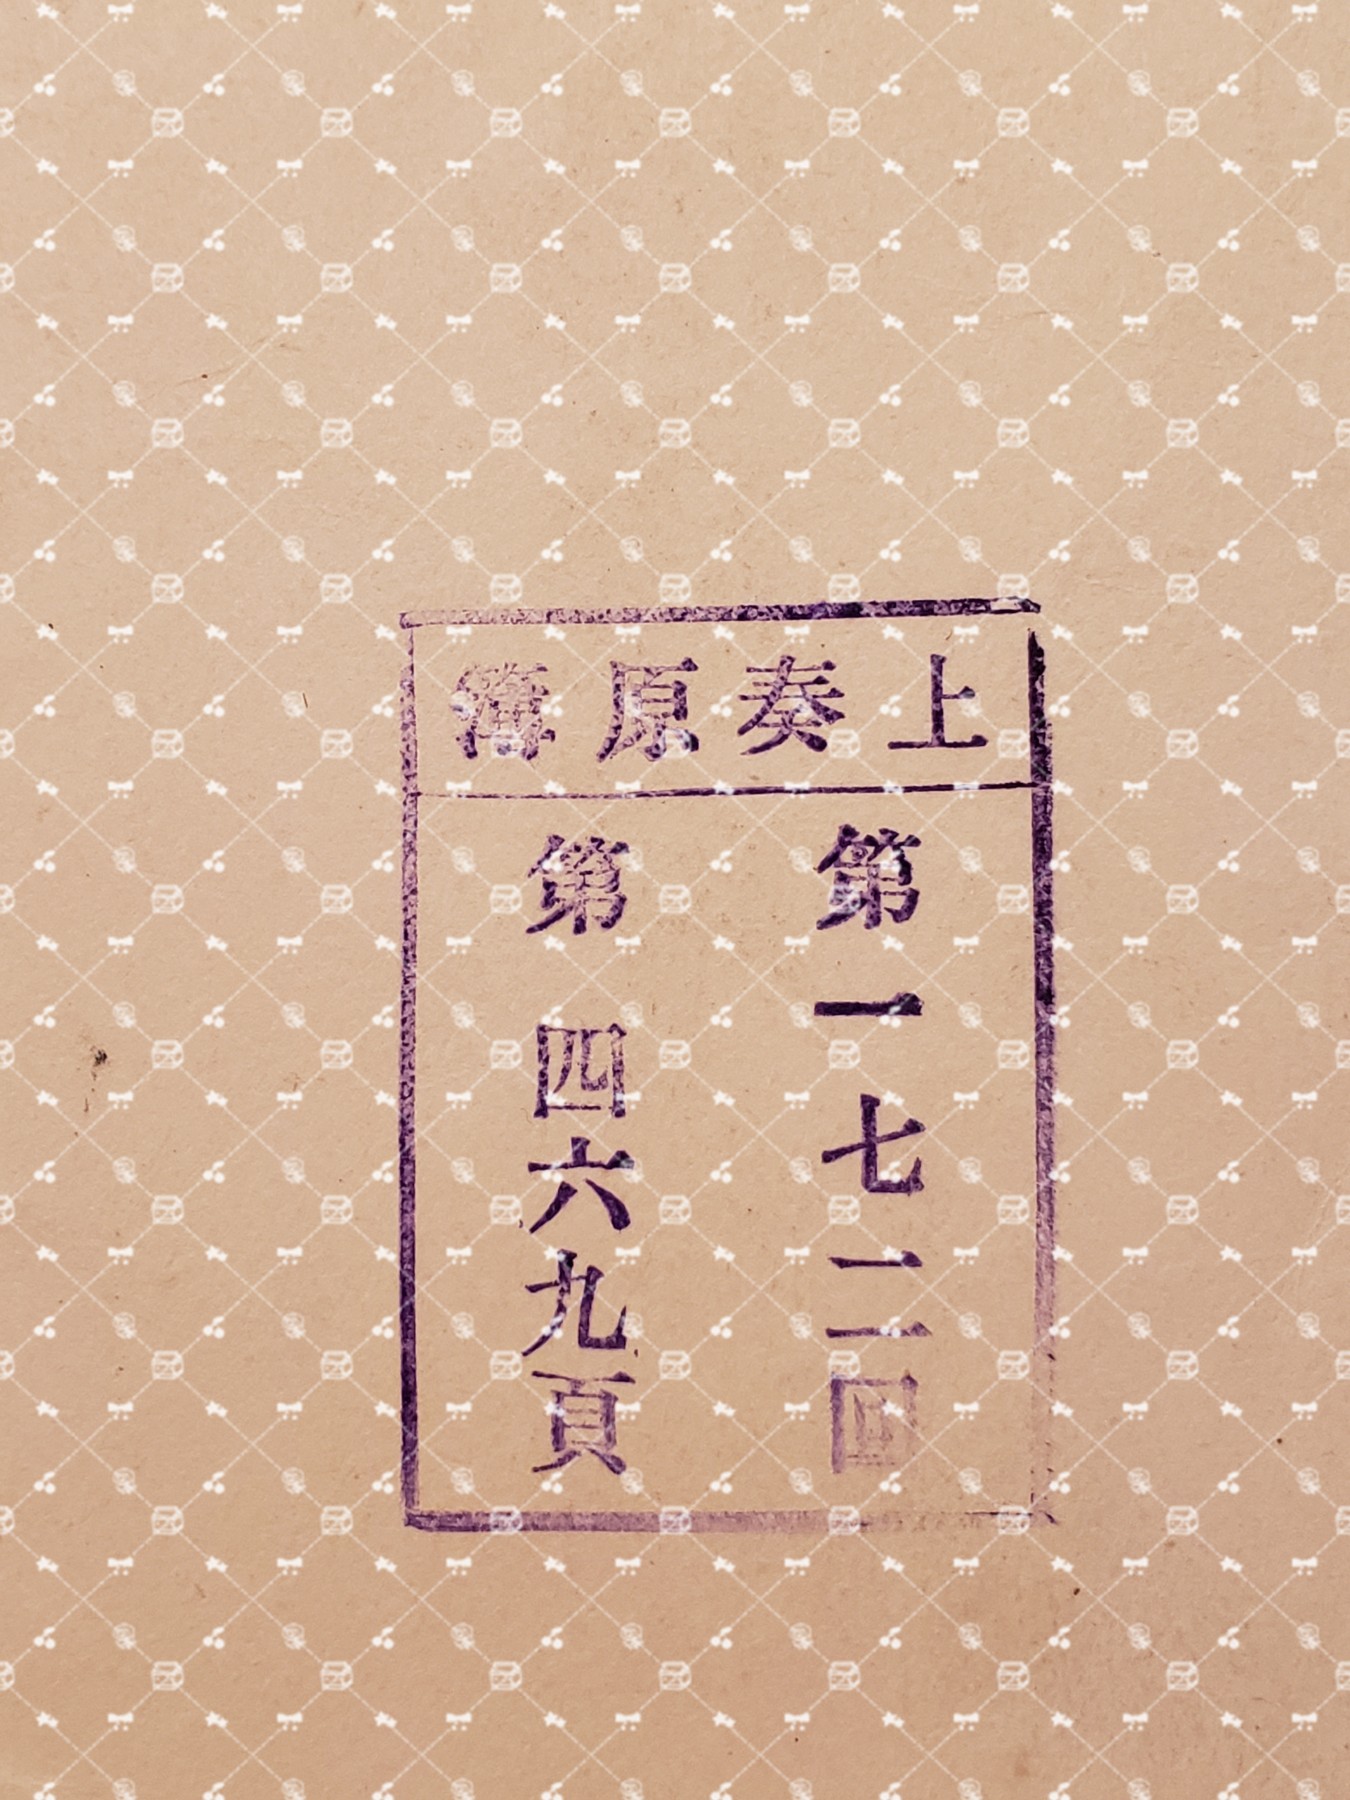 上奏原簿
第一七二回
第四六九頁